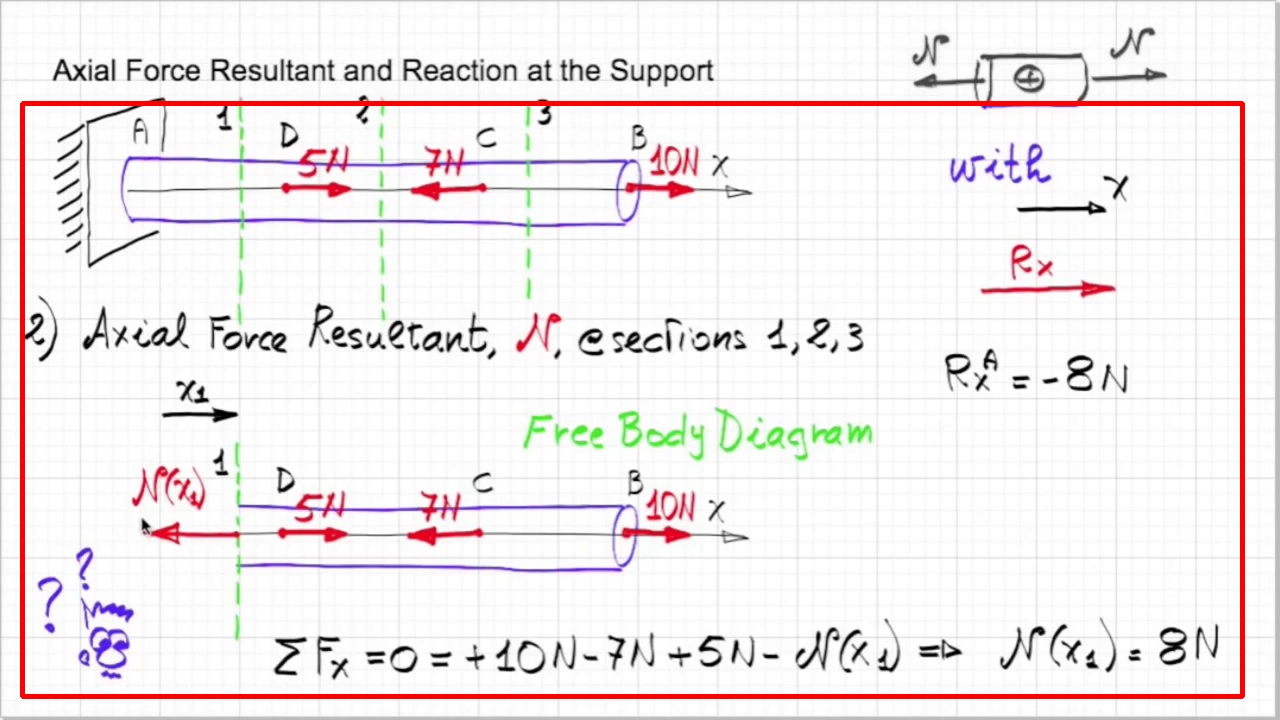 Axial Force Resultant and Reaction at the Support
N ⊕ N
1 2 3
A D C B
5N 7N 10N x
with
x
Rx
2) Axial Force Resultant, N, @sections 1,2,3
RxA = -8N
x1
Free Body Diagram
1 D C B
N(x1) 5N 7N 10N x
? ?
ΣFx = 0 = +10N - 7N + 5N - N(x1) => N(x1) = 8N